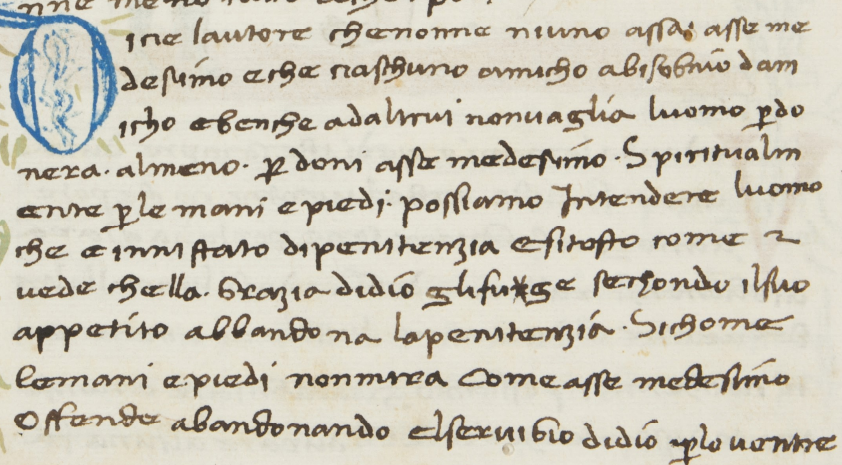 Dicie lautore chenonne niuno assai asse me
desimo e che ciaschuno amicho a bisobnio dam
icho ebenche adaltrui nonvaglia luomo ꝑdo
nera · almeno · ꝑ doni asse medesimo · Spiritualm
ente ꝑ le mani e piedi · possiamo Intendere luomo
che e innistato dipenitenzia Esitosto come
vede chella · Grazia didio gli fugge sechondo ilsuo
appetito abbandona lapenitenzia · Sichome
lemani e piedi nonmira Come asse medesimo
Offende abandonando elservibio didio ꝑ lo ventre